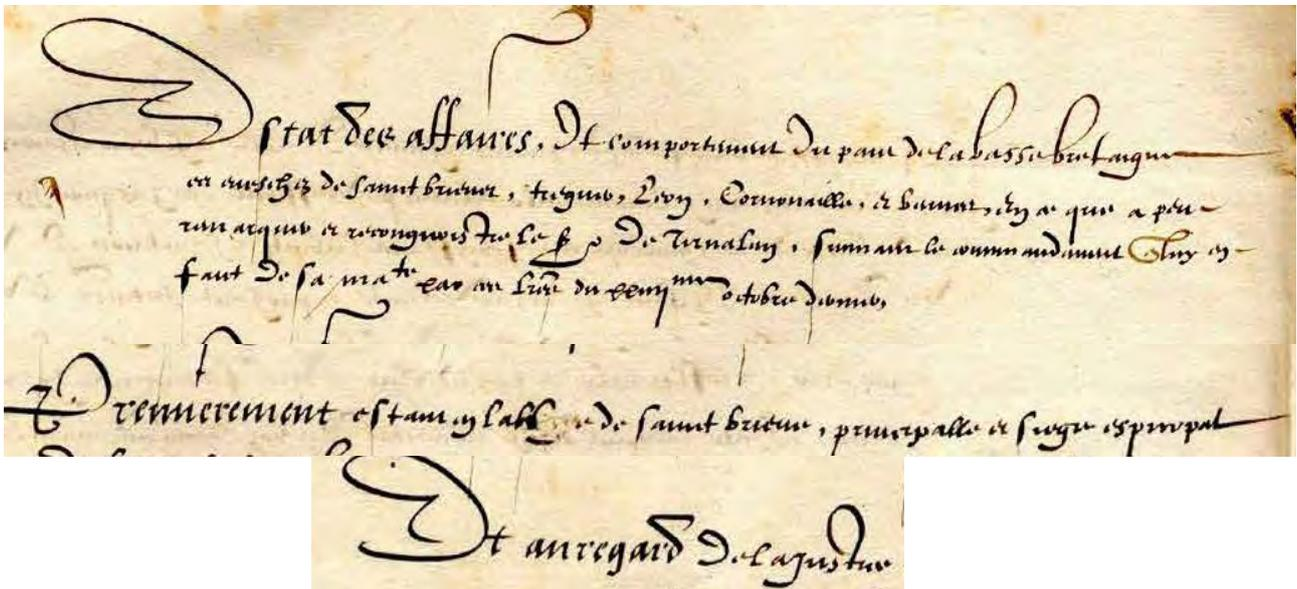 Estat des affaires, Et comportement du pais de la basse bretaigne
es eveschez de saint brieuc, treguier, Leon, Cornouaille, et vannes, en ce que a peu
remarquer et recongnoistre le Sr de Kervalan, suivant le commandement A luy en
faict de sa mate par ses lres du octobre dernier,
Premierement estant en la de saint brieuc, principalle et siege espicopal
Et au regard de la justice